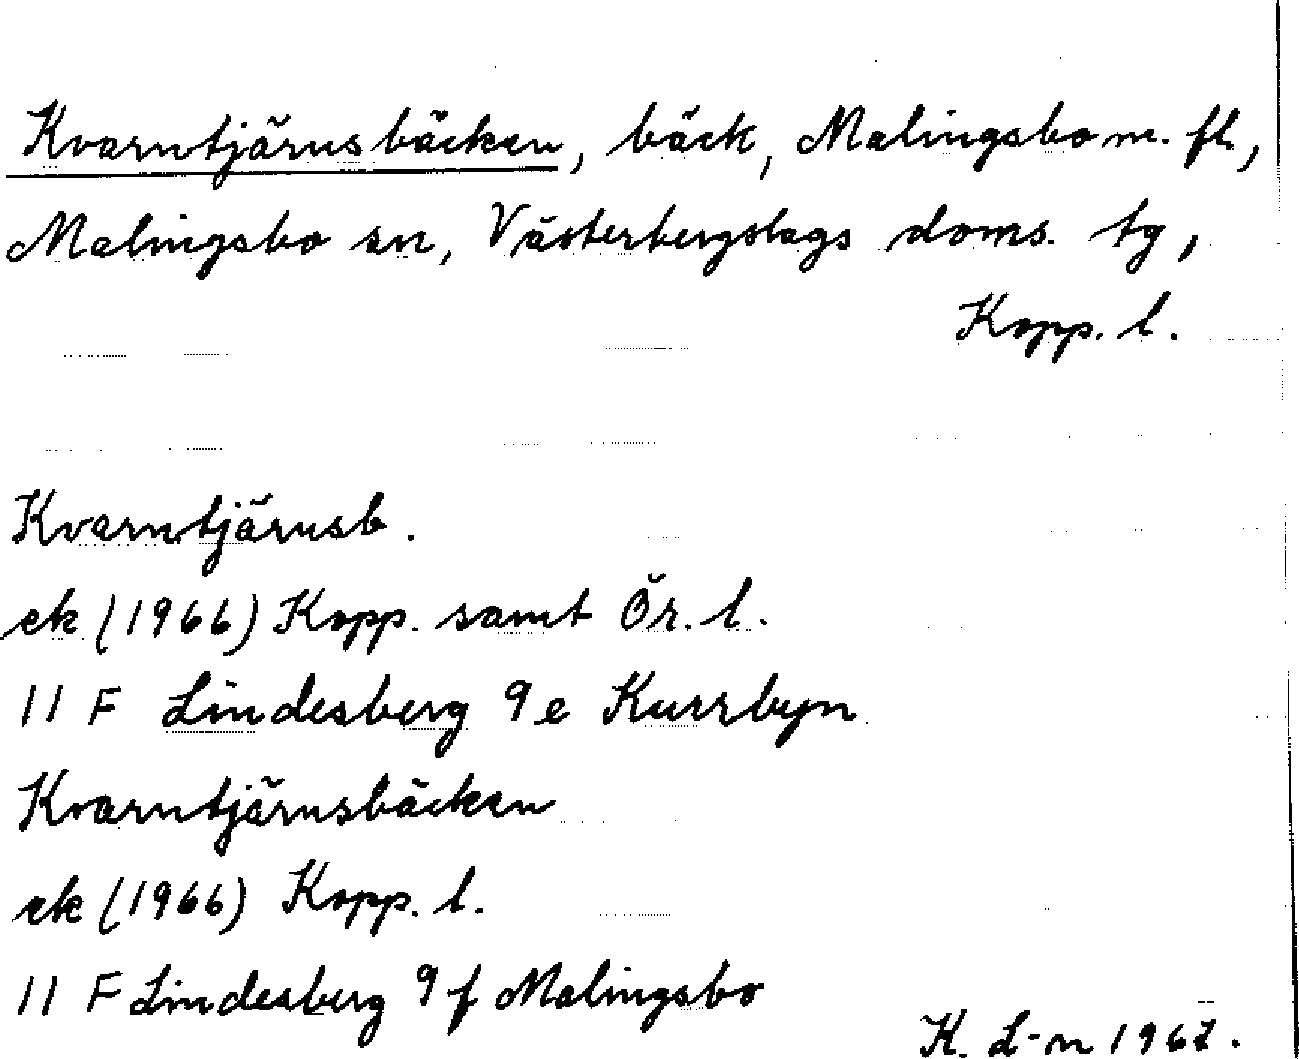 Kvarntjärnsbäcken, bäck, Malingsbo m. fl.,
Malingsbo sn, Västerbergslags doms. tg,
Kopp. l.
Kvarntjärnsb.
ek (1966) Kopp. samt Ör. l.
11 F Lindesberg 9 e Kurrbyn
Kvarntjärnsbäcken
ek (1966) Kopp. l.
11 F Lindesberg 9 f Malingsbo
K. L-n 1967.